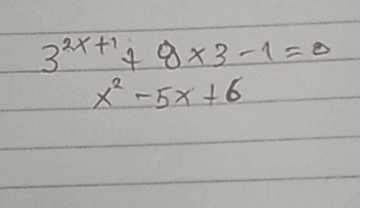 3^{2x+1} + 8×3-1=0
x²-5x+6